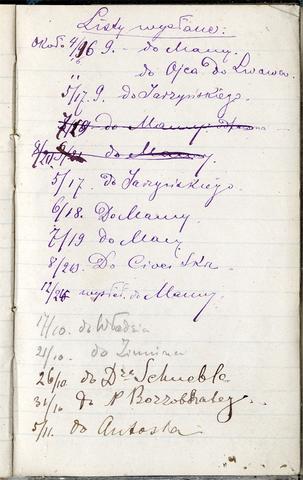 Listy wysłane:
około 4/16 9. – do Mamy.
do Ojca do Lwowa
5/17. 9. do Jarzyńskiego.
7/19 do Mamy
8/20 do Mamy.
5/17. do Jarzyńskiego.
6/18. Do Mamy.
7/19 do Mamy
8/20. Do Cioci
12/24 wysłał. do Mamy.
17/10. do Władzia
21/10. do
26/10 do Dra Schneble
31/10 do P.
5/11. do Antosia